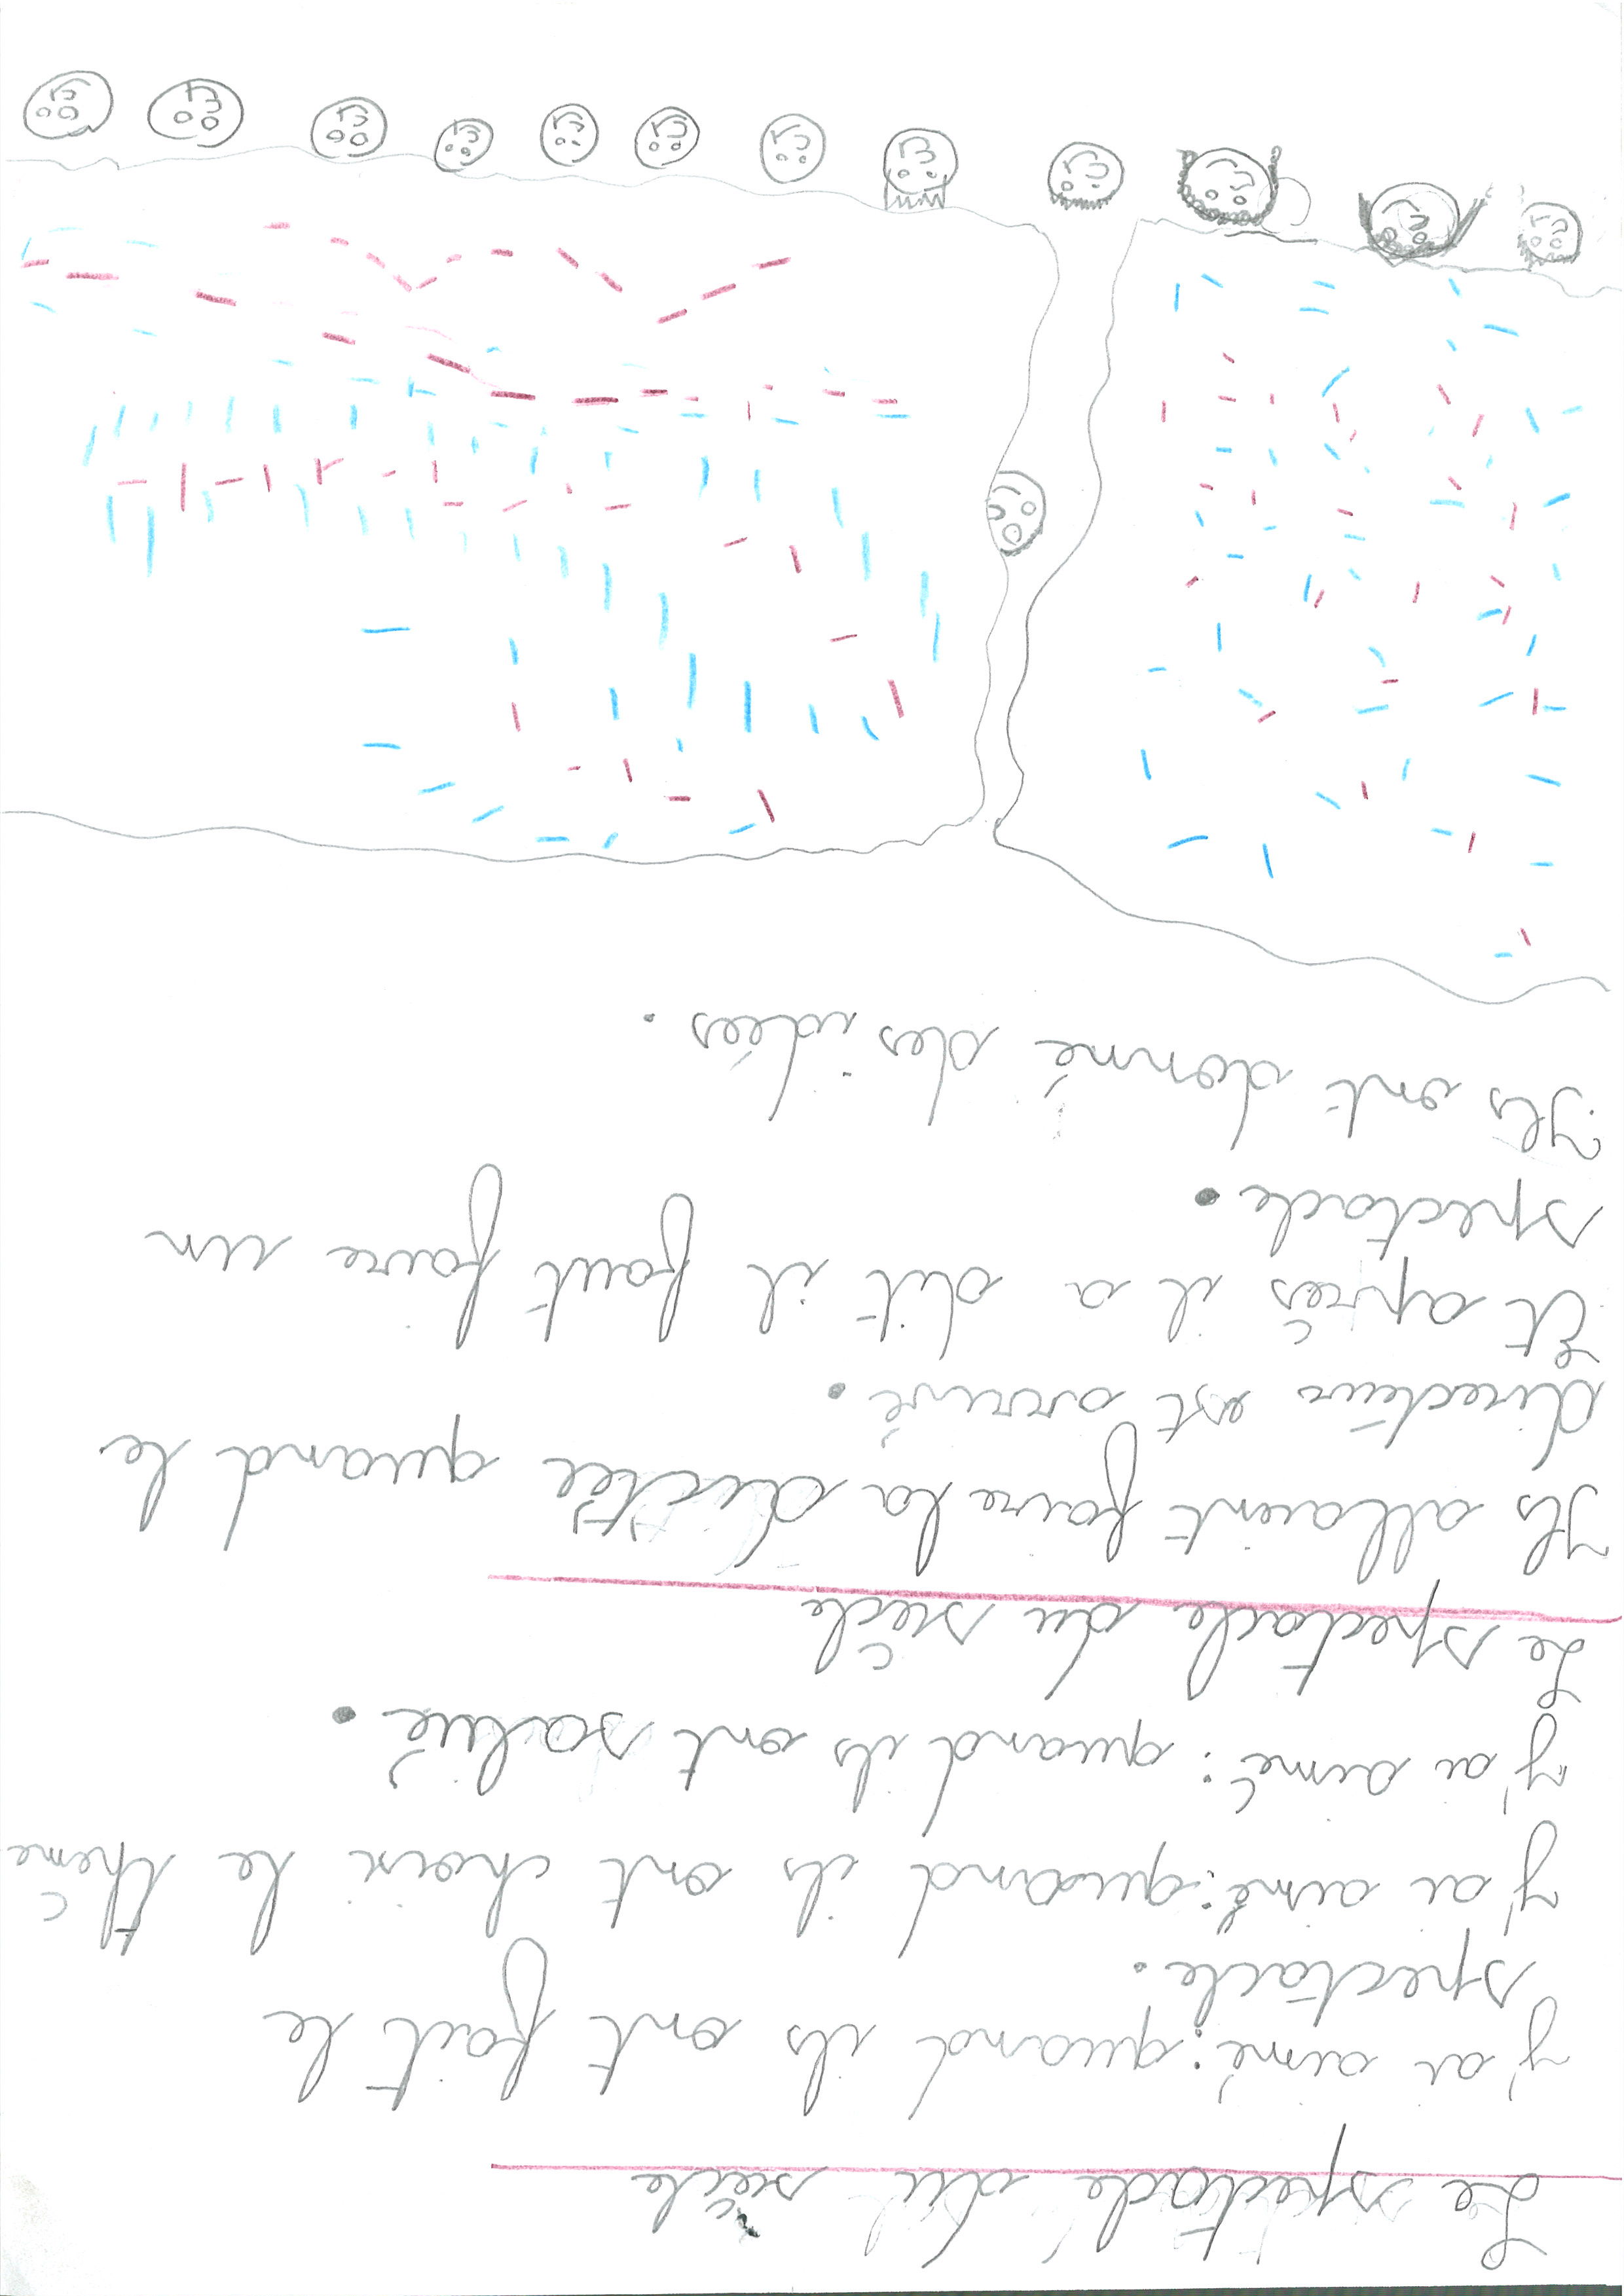 Le spectacle du siècle
J'ai aimé: quand ils ont fait le
spectacle.
J'ai aimé: quand ils ont choisi le thème
J'ai aimé: quand ils ont salué.
Le spectacle du siècle
Ils allaient faire la dictée quand le
directeur est arrivé.
Et après il a dit il faut faire un
spectacle.
Ils ont donné des idées.